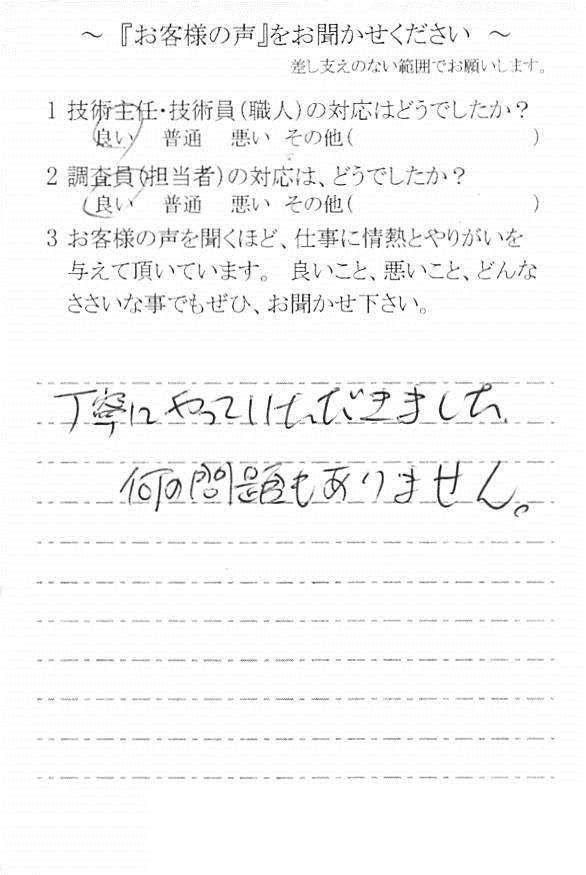 ～ 『お客様の声』をお聞かせください ～
差し支えのない範囲でお願いします。
1 技術主任・技術員(職人)の対応はどうでしたか？
良い 普通 悪い その他( )
2 調査員(担当者)の対応は、どうでしたか？
良い 普通 悪い その他( )
3 お客様の声を聞くほど、仕事に情熱とやりがいを
与えて頂いています。 良いこと、悪いこと、どんな
ささいな事でもぜひ、お聞かせ下さい。
丁寧にやっていただきました、
何の問題もありません。